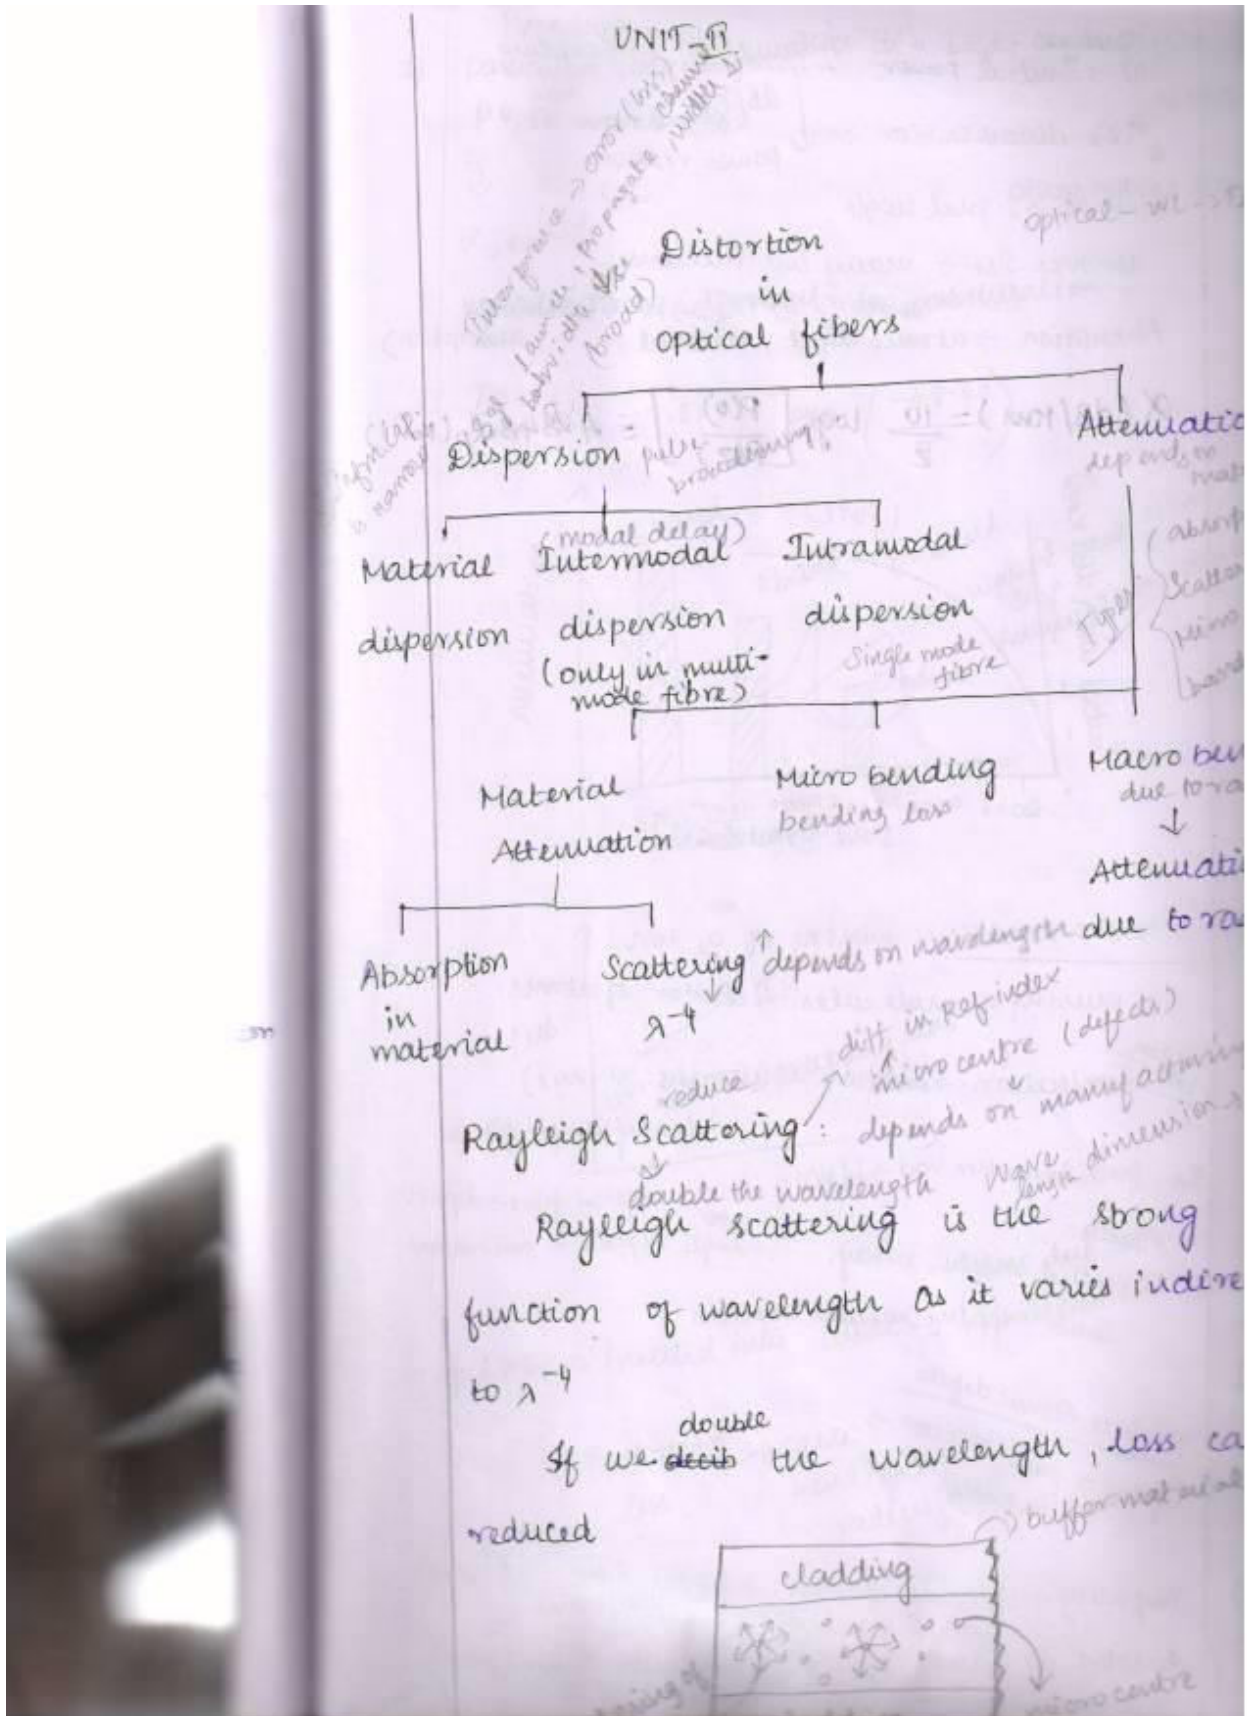 UNIT-II
Interference → error
propagate
(broad)
optical - WL
Distortion
in
optical fibers
Dispersion pulse broadening
Attenuatio
depends on
mat
(modal delay)
Material Intermodal Intramodal
dispersion dispersion dispersion
(only in multi-
mode fibre)
Single mode
fibre
types
absorp
Scatter
micro
band
Material
Attenuation
Micro bending
bending loss
Macro ben
due to ra
↓
Attenuati
due to ra
Absorption
in
material
Scattering ↑ depends on wavelength
↓
λ⁻⁴
diff in Ref-index
↑
micro centre (defects)
reduce
Rayleigh Scattering : depends on manufacturing
double the wavelength
wave length dimension
Rayleigh scattering is the strong
function of wavelength as it varies indire
to λ⁻⁴
double
If we the wavelength, loss ca
reduced
buffer material
cladding
micro centre